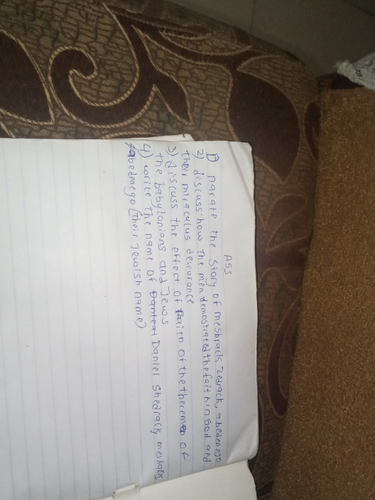 Ass
1) narate the story of meshrack, zedrack, abedenego
2) discuss how the men demostrated the faith in God and
their miraculus devurance
3) discuss the effect of faith of the three men of
the babylonians and Jews
4) write the name of Daniel Shedrack, meshack
Abedmego (their Jewish name)